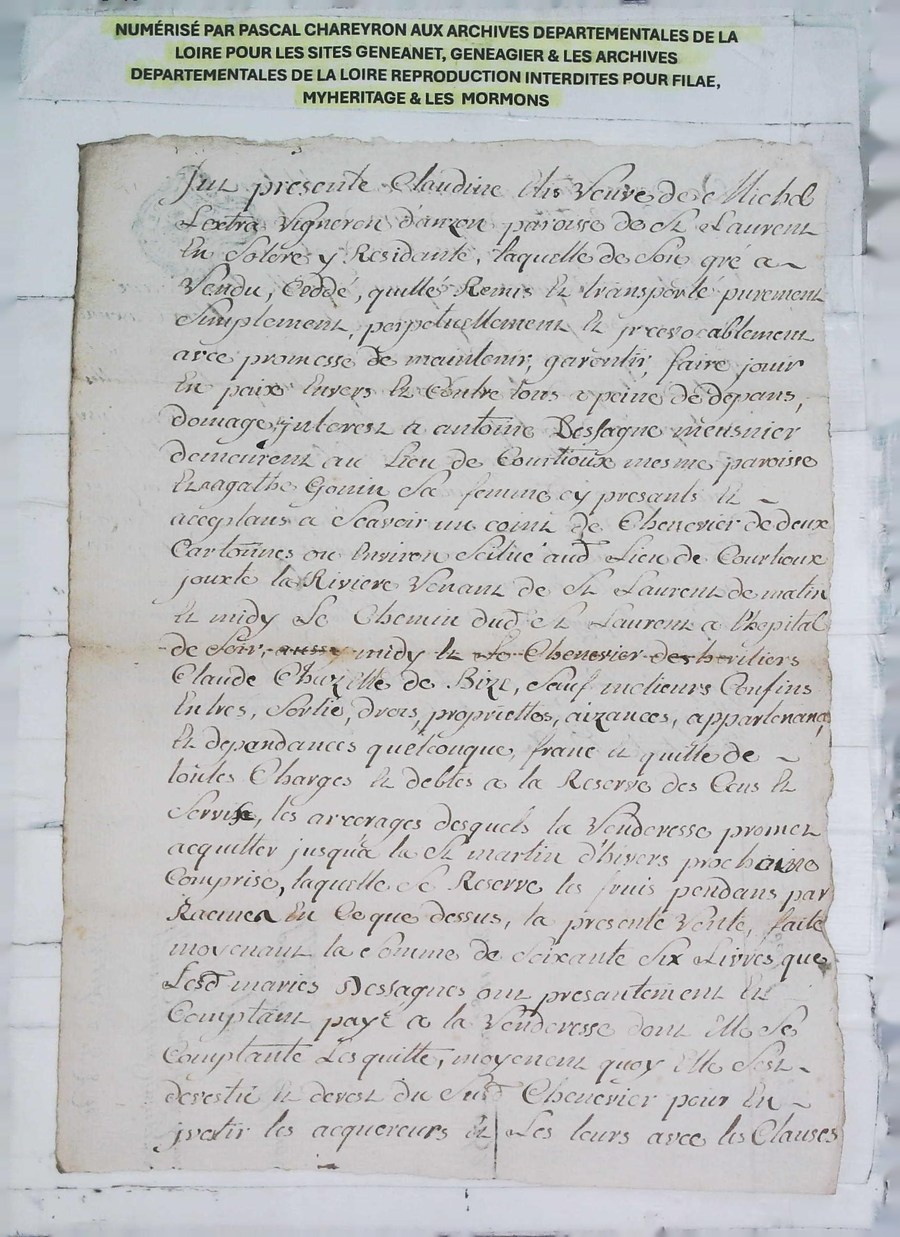 NUMÉRISÉ PAR PASCAL CHAREYRON AUX ARCHIVES DEPARTEMENTALES DE LA
LOIRE POUR LES SITES GENEANET, GENEAGIER & LES ARCHIVES
DEPARTEMENTALES DE LA LOIRE REPRODUCTION INTERDITES POUR FILAE,
MYHERITAGE & LES MORMONS
fut presente Claudine Veuve de Michel
Lextra Vigneron d'anzon paroisse de St Laurent
En Solore y Residante, laquelle de Son gré a
Vendu, Ceddé, quitté Remis Et transporté purement
Simplement, perpetuellement Et jrrevocablement
avec promesse de maintenir, garentir, faire jouir
En paix Envers Et Contre tous a peine de depans,
domage jnterest a antoine Dessagne meusnier
demeurent au Lieu de Courtioux mesme paroisse
Et agathe Gonin Sa femme cy presants Et
acceptans a Scavoir un coint de Chenevier de deux
Cartonnes ou Environ Scitué aud Lieu de Courtioux
jouxte la Riviere Venant de St Laurent de matin
Et midy Le Chemin dud St Laurent a l'hopital
de Soir, midy Et Le Chenevier des heritiers
Claude Chazette de Bize, Sauf melieurs Confins
Entres, Sortie, drois, propriettes, aizances, appartenances
Et dependances quelconque, franc Et quitte de
toutes Charges Et debtes a la Reserve des Cens Et
Servise, les arrerages desquels la Venderesse promet
acquitter jusqu'a la St martin d'hivers prochaine
Comprise, laquelle Se Reserve les fruis pendans par
Racines En Ce que dessus, la presente Vente, faite
moyenant la Somme de Soixante Six Livres que
Lesd mariés Dessagnes ont presantement Et
Comptant payé a la Venderesse dont Elle Se
Comptante Les quitte, moyenent quoy Elle Sest
devestie Et devest du Susd Chenevier pour En
jvetir les acquereurs Et Les leurs avec les Clauses